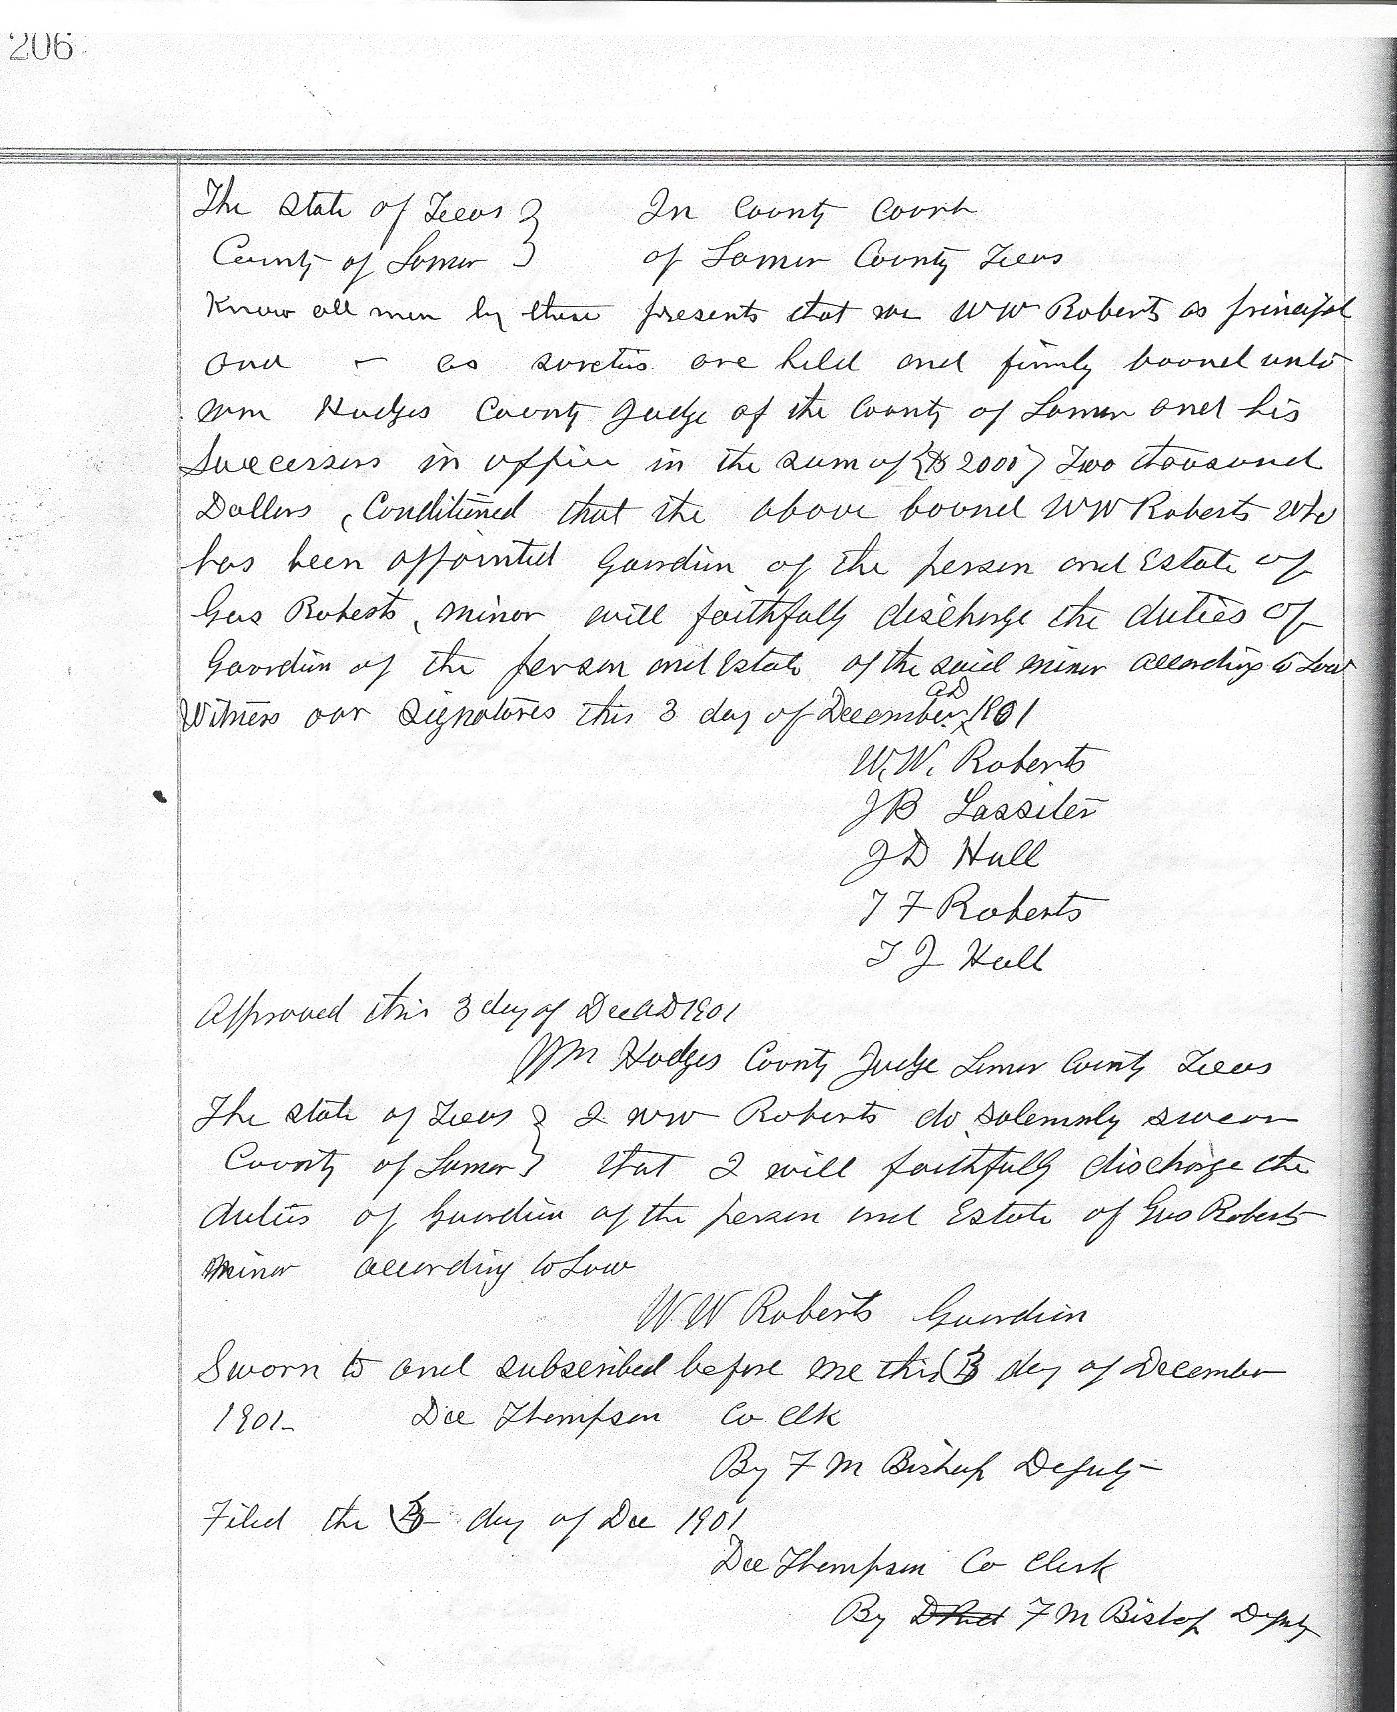 206
The State of Texas } In County Court
County of Lamar } of Lamar County Texas
Know all men by these presents that we WW Roberts as principal
and — as sureties are held and firmly bound unto
Wm Hodges County Judge of the County of Lamar and his
Successors in office in the sum of ($2000) Two thousand
Dollars, Conditioned that the above bound WW Roberts who
has been appointed Guardian of the person and Estate of
Gus Roberts, minor will faithfully discharge the duties of
Guardian of the person and Estate of the said minor according to Law
Witness our Signatures this 3 day of December AD 1901
W.W. Roberts
JB Lassiter
JD Hall
T F Roberts
T J Hall
Approved this 3 day of Dec AD 1901
Wm Hodges County Judge Lamar County Texas
The State of Texas } I WW Roberts do Solemnly swear
County of Lamar } that I will faithfully discharge the
duties of Guardian of the person and Estate of Gus Roberts
minor according to Law
W.W Roberts Guardian
Sworn to and subscribed before me this 3 day of December
1901- Dee Thompson Co Clk
By F M Bishop Deputy
Filed the 3 day of Dec 1901
Dee Thompson Co Clerk
By F M Bishop Deputy